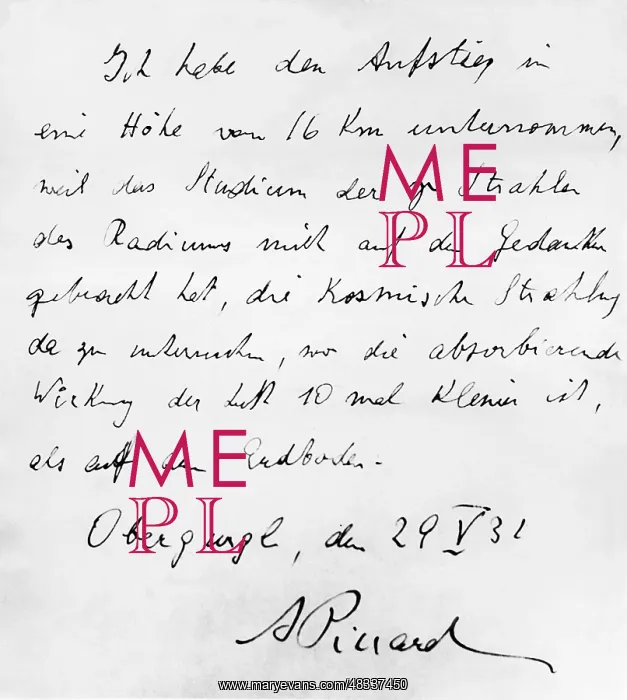 Ich habe den Aufstieg in
eine Höhe von 16 Km unternommen,
weil das Studium der γ Strahlen
des Radiums mich auf den Gedanken
gebracht hat, die Kosmische Strahlung
da zu untersuchen, wo die absorbierende
Wirkung der Luft 10 mal kleiner ist,
als auf dem Erdboden.
Obergurgl, den 29 V 31
A Piccard
ME
PL
ME
PL
www.maryevans.com/48337450